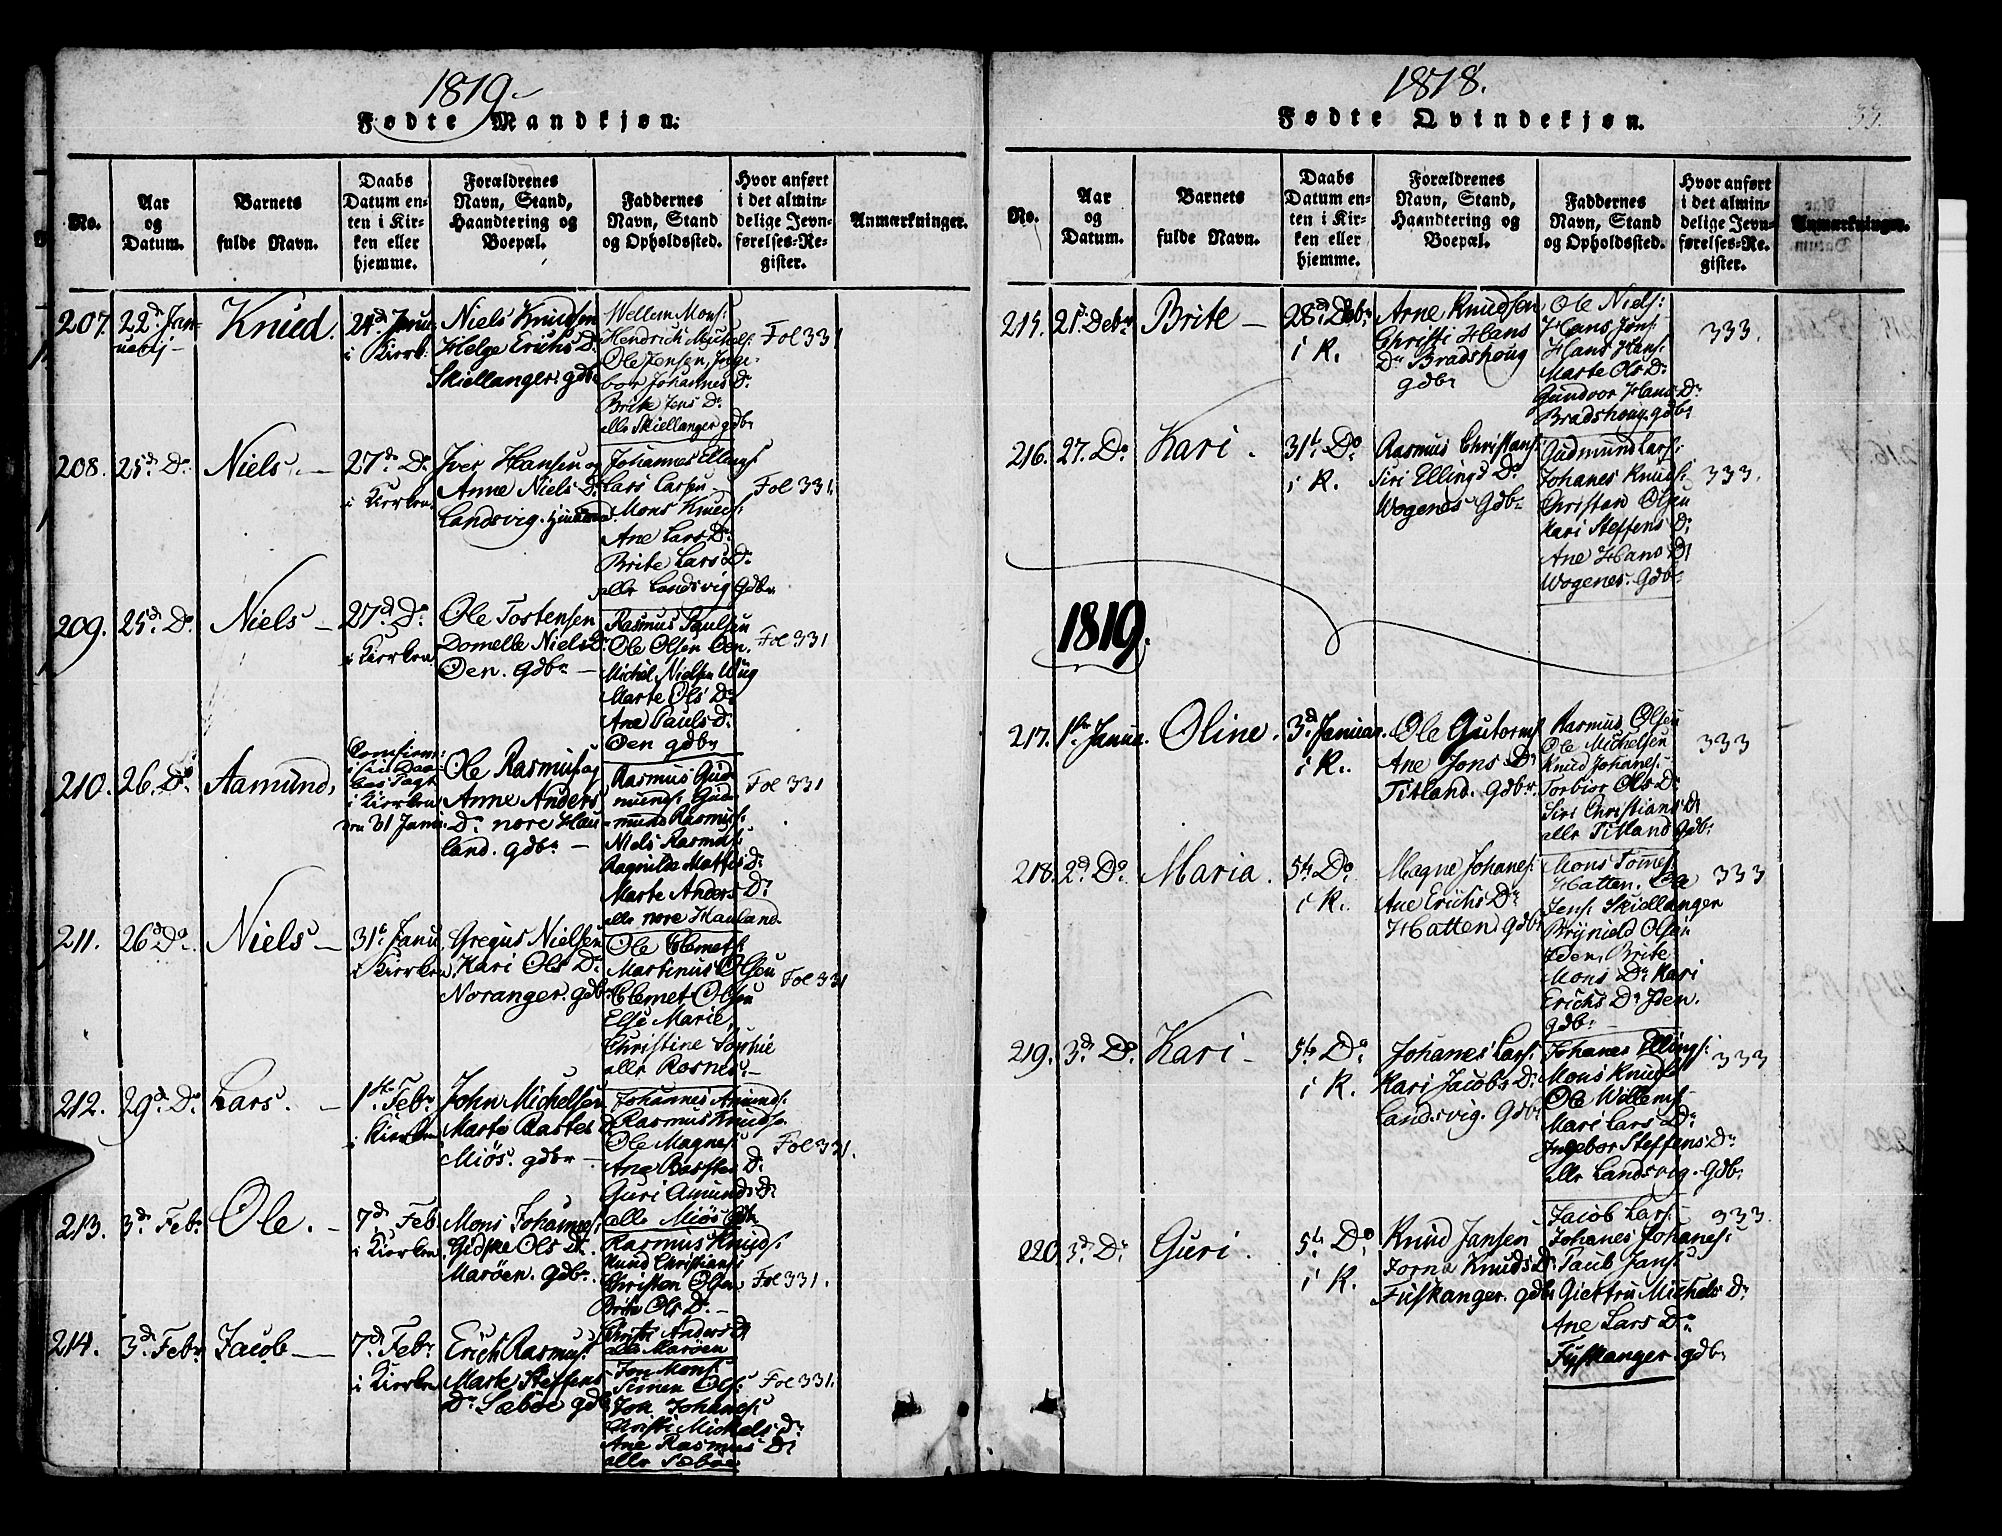 1819.
Fødte Mandkjøn.
No.
Aar
og
Datum.
Barnets
fulde Navn.
Daabs
Datum en-
ten i Kir-
ken eller
hjemme.
Forældrenes
Navn, Stand,
Haandtering og
Boepæl.
Faddernes
Navn, Stand
og Opholdssted.
Hvor anført
i det almin-
delige Jevn-
førelses-Re-
gister.
Anmarkninger.
207.
22d Jan-
uarij
Knud.
24d Janu
i Kirk.
Niels Knudsen
Helge Erichs D.
Skiellanger. gdbr
Wellem Mons:
Hendrich Michels:
Ole Jensen, Inge-
bor Johannes D.
Brite Jens Dr
alle Skiellanger gdbr
Fol 331
208.
25d Do
Niels. -
27d Do
i Kirken
Iver Hansen og
Anne Niels D.
Landsvig.
Johannes Ellings:
Lars Larsen
Mons Knuds:
Ane Lars Dr
Brite Lars Dr
alle Landsvig Gdbr
Fol 331.
209.
25d Do
Niels -
27d Do
i Kirken
Ole Tostensen
Domelle Niels D.
Øen. gdbr -
Rasmus Paulsen
Ole Olsen Øen.
Michel Nielsen Wüg
Marte Ols Dr
Ane Pauls Dr
Øen gdbr
Fol 331
210.
26. Do
Aamund,
i Kirken
den 31 Janu.
Ole Rasmus: og
Anne Anders
Dr nore Hau
land. gdbr -
Rasmus Gud-
munds: Gud-
mund Rasmus:
Niels Rasmus:
Ragnilda Mattis Dr
Marte Anders Dr
alle nore Hauland.
Fol 331
211.
26d Do
Niels -
31t Janu
i Kirken
Gregus Nielsen
Kari Ols Dr
Noranger. gdbr
Ole Clemets:
Martinus Olsen
Clemet Olsen
Else Marie,
Christine Sophie
alle Rosnes.-
Fol 331
212.
29d Do
Lars. -
1ste Febr
i Kirken
John Michelsen
Marte Rastes D.
Miøs. gdbr -
Johannes Amunds:
Rasmus Knuds:
Ole Magnes:
Ane Rasstes D.
Guri Amunds Dr
alle Miøs Gdbr
Fol 331.
213.
3d Febr
Ole. -
7d Feb
i Kirken
Mons Johannes:
Gidske Ols Dr
Marøen. gdbr.
Rasmus Knuds:
Knud Christians:
Christen Olsen
Brite Ols D. -
Christi Anders D
alle Marøen
Fol 331.
214.
3d Febr
Jacob -
7d Febr
i Kirken
Erich Rasmus:
Marte Steffens
Dr Sæbøe gdbr
Jon Mons:
Simen Ols:
Jon Johanes:
Christi Michels Dr
Ane Rasmus Dr
alle Sæbøe
Fol 331.
1818.
33.
Fødte Qvindekjøn.
No.
Aar
og
Datum.
Barnets
fulde Navn.
Daabs
Datum en-
ten i Kir-
ken eller
hjemme.
Forældrenes
Navn, Stand,
Haandtering og
Boepæl.
Faddernes
Navn, Stand
og Opholdssted.
Hvor anført
i det almin-
delige Jevn-
førelses-Re-
gister.
Anmarkninger.
215.
21d Debr
Brite -
28d Debr
i K.
Arne Knudsen
Christi Hans
Dr Bradshoug
gdbr
Ole Niels:
Hans Jons:
Hans Hans:
Marte Ols Dr
Gundvor Hans Dr
Bradshoug. gdbr
333.
216.
27. Do
Kari.
31t Do
i K.
Rasmus Christans:
Siri Ellings Dr
Wogenes Gdbr
Gudmund Lars:
Johanes Knuds:
Christen Olsen
Kari Steffens Dr
Ane Hans Dr
Wogenes. Gdbr
333.
1819.
217.
1ste Janua.
Oline.
3d Januar.
i K.
Ole Gutorms:
Ane Jons Dr
Titland. Gdbr.
Rasmus Olsen
Ole Michelsen
Knud Johanes:
Torbior Ols Dr
Siri Christians Dr
alle Titland Gdbr
333
218.
2d Do
Maria.
5te Do
i K.
Magne Johanes:
Ane Erichs Dr
Hatten. Gdbr
Mons Tomes:
Hatten. Ole
Jens: Skiellanger
Brynield Olsen
Iden, Brite
Mons Dr Kari
Erichs Dr Iden.
gdbr
333
219.
3d Do
Kari -
5te Do
i K.
Johanes Lars:
Kari Jacobs Dr
Landsvig. Gdbr
Johanes Ellings:
Mons Knuds:
Ole Willems:
Mari Lars Dr
Ingebor Steffens Dr
alle Landsvig. Gdbr
333
220.
3d Dr
Guri.
5te Do
i K.
Knud Jansen
Jorna Knuds Dr
Fuskanger. gdbr
Jacob Lars:
Johanes Johanes:
Paul Jans:
Giertru Michels Dr
Ane Lars Dr
Fyskanger. gdbr
333.